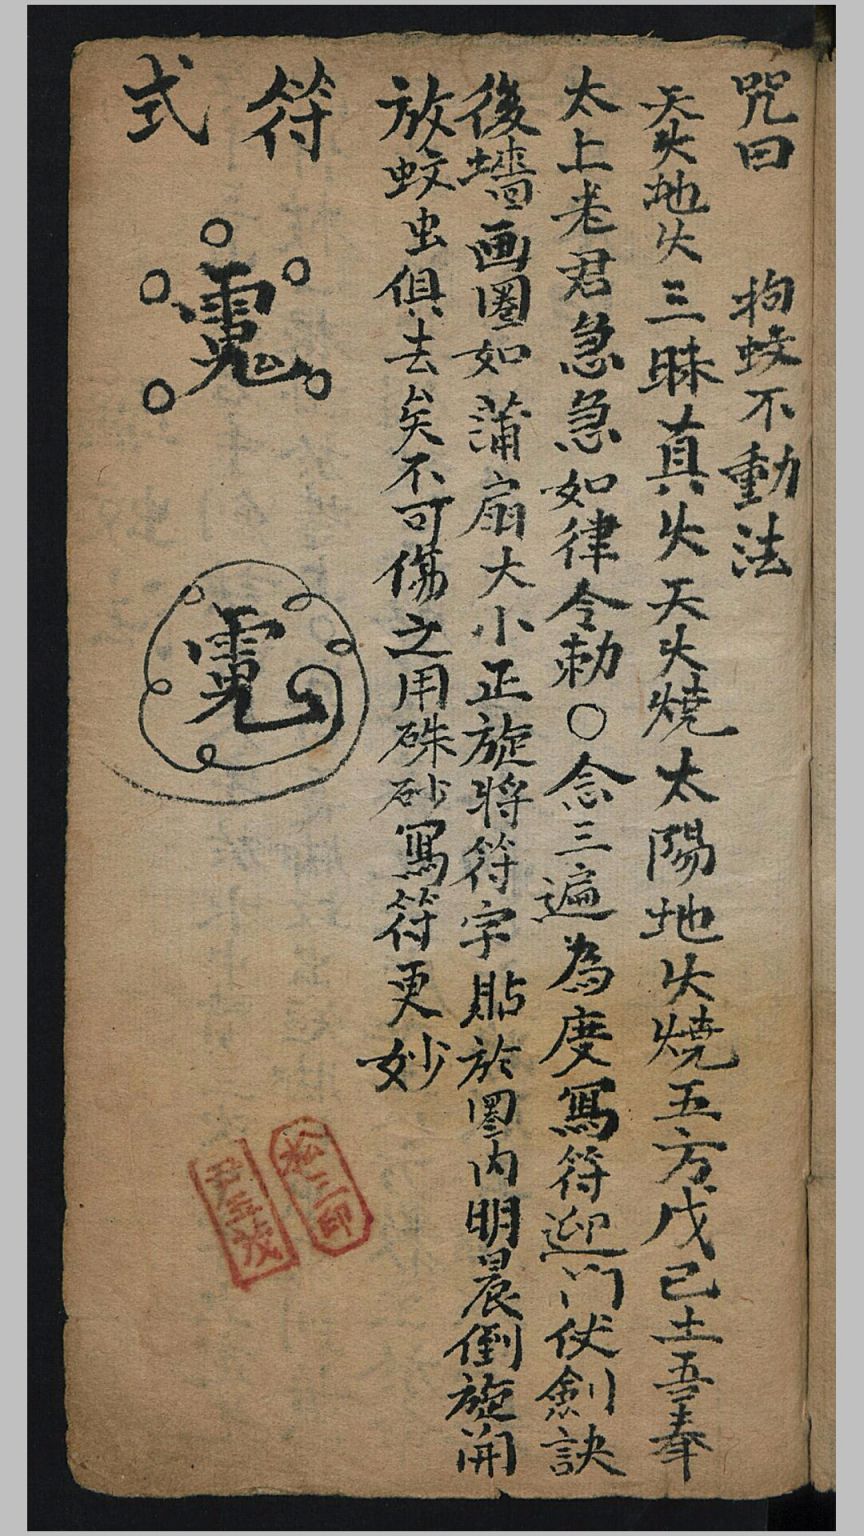 咒曰　　拘蚊不動法
天火地火三昧真火天火燒太陽地火燒五方戊己土吾奉
太上老君急急如律令勅〇念三遍為度寫符迎門伏劍訣
後墻画圈如蒲扇大小正旋將符字貼於圈内明晨倒旋開
放蚊虫俱去矣不可傷之用硃砂寫符更妙
符式